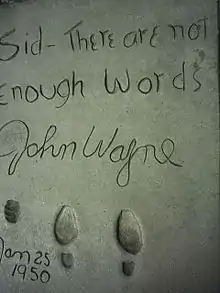 Sid - There are not
Enough Words
John Wayne
Jan 25
1950